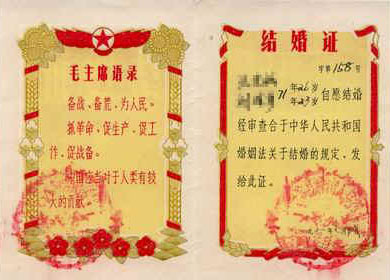 毛主席语录
备战、备荒、为人民。
抓革命,促生产,促工
作,促战备。
中国应当对于人类有较
大的贡献。
结婚证
字第158号
71年26岁
年23岁 自愿结婚
经审查合于中华人民共和国
婚姻法关于结婚的规定,发
给此证。